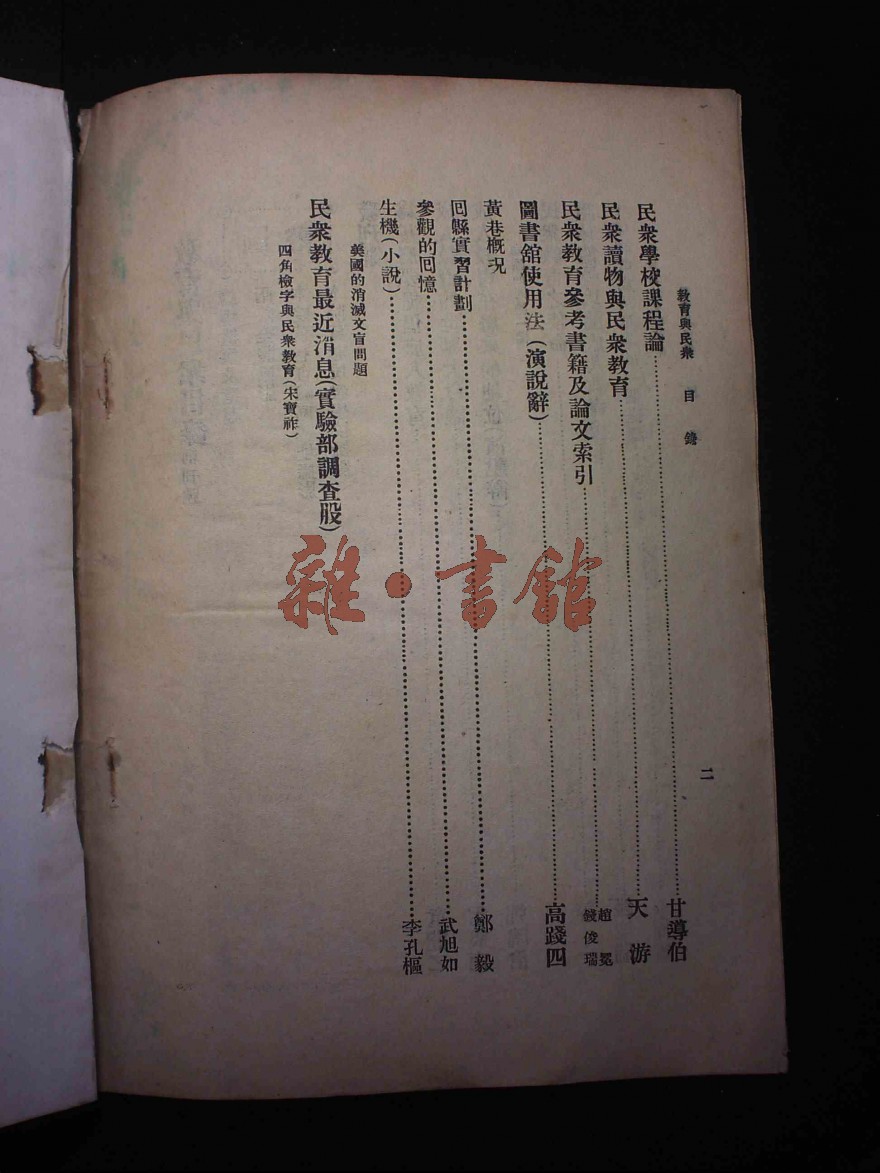 教育與民衆　目錄
二
民衆學校課程論……甘導伯
民衆讀物與民衆教育……天游
民衆教育參考書籍及論文索引……趙冕 錢俊瑞
圖書舘使用法(演說辭)……高踐四
黃巷概況
回縣實習計劃……鄭毅
參觀的回憶……武旭如
生機(小說)……李孔樞
美國的消滅文盲問題
民衆教育最近消息(實驗部調查股)
四角檢字與民衆教育(宋寶祚)
雜·書館